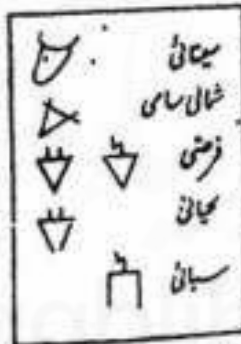 سینائی
شمالی سامی
فرضی
لحیانی
سبائی